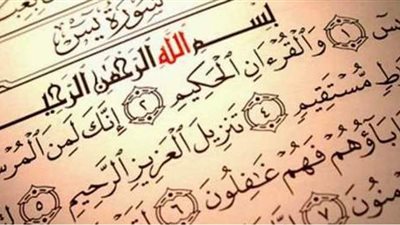 سُورَةُ يسٓ
بِسْمِ ٱللَّهِ ٱلرَّحْمَٰنِ ٱلرَّحِي
يسٓ ١ وَٱلْقُرْءَانِ ٱلْحَكِيمِ ٢ إِنَّكَ لَمِنَ ٱلْمُرْسَ
رَٰطٍ مُّسْتَقِيمٍ ٤ تَنزِيلَ ٱلْعَزِيزِ ٱلرَّحِيمِ ٥
ءَابَآؤُهُمْ فَهُمْ غَٰفِلُونَ ٦
مِنُونَ ٧